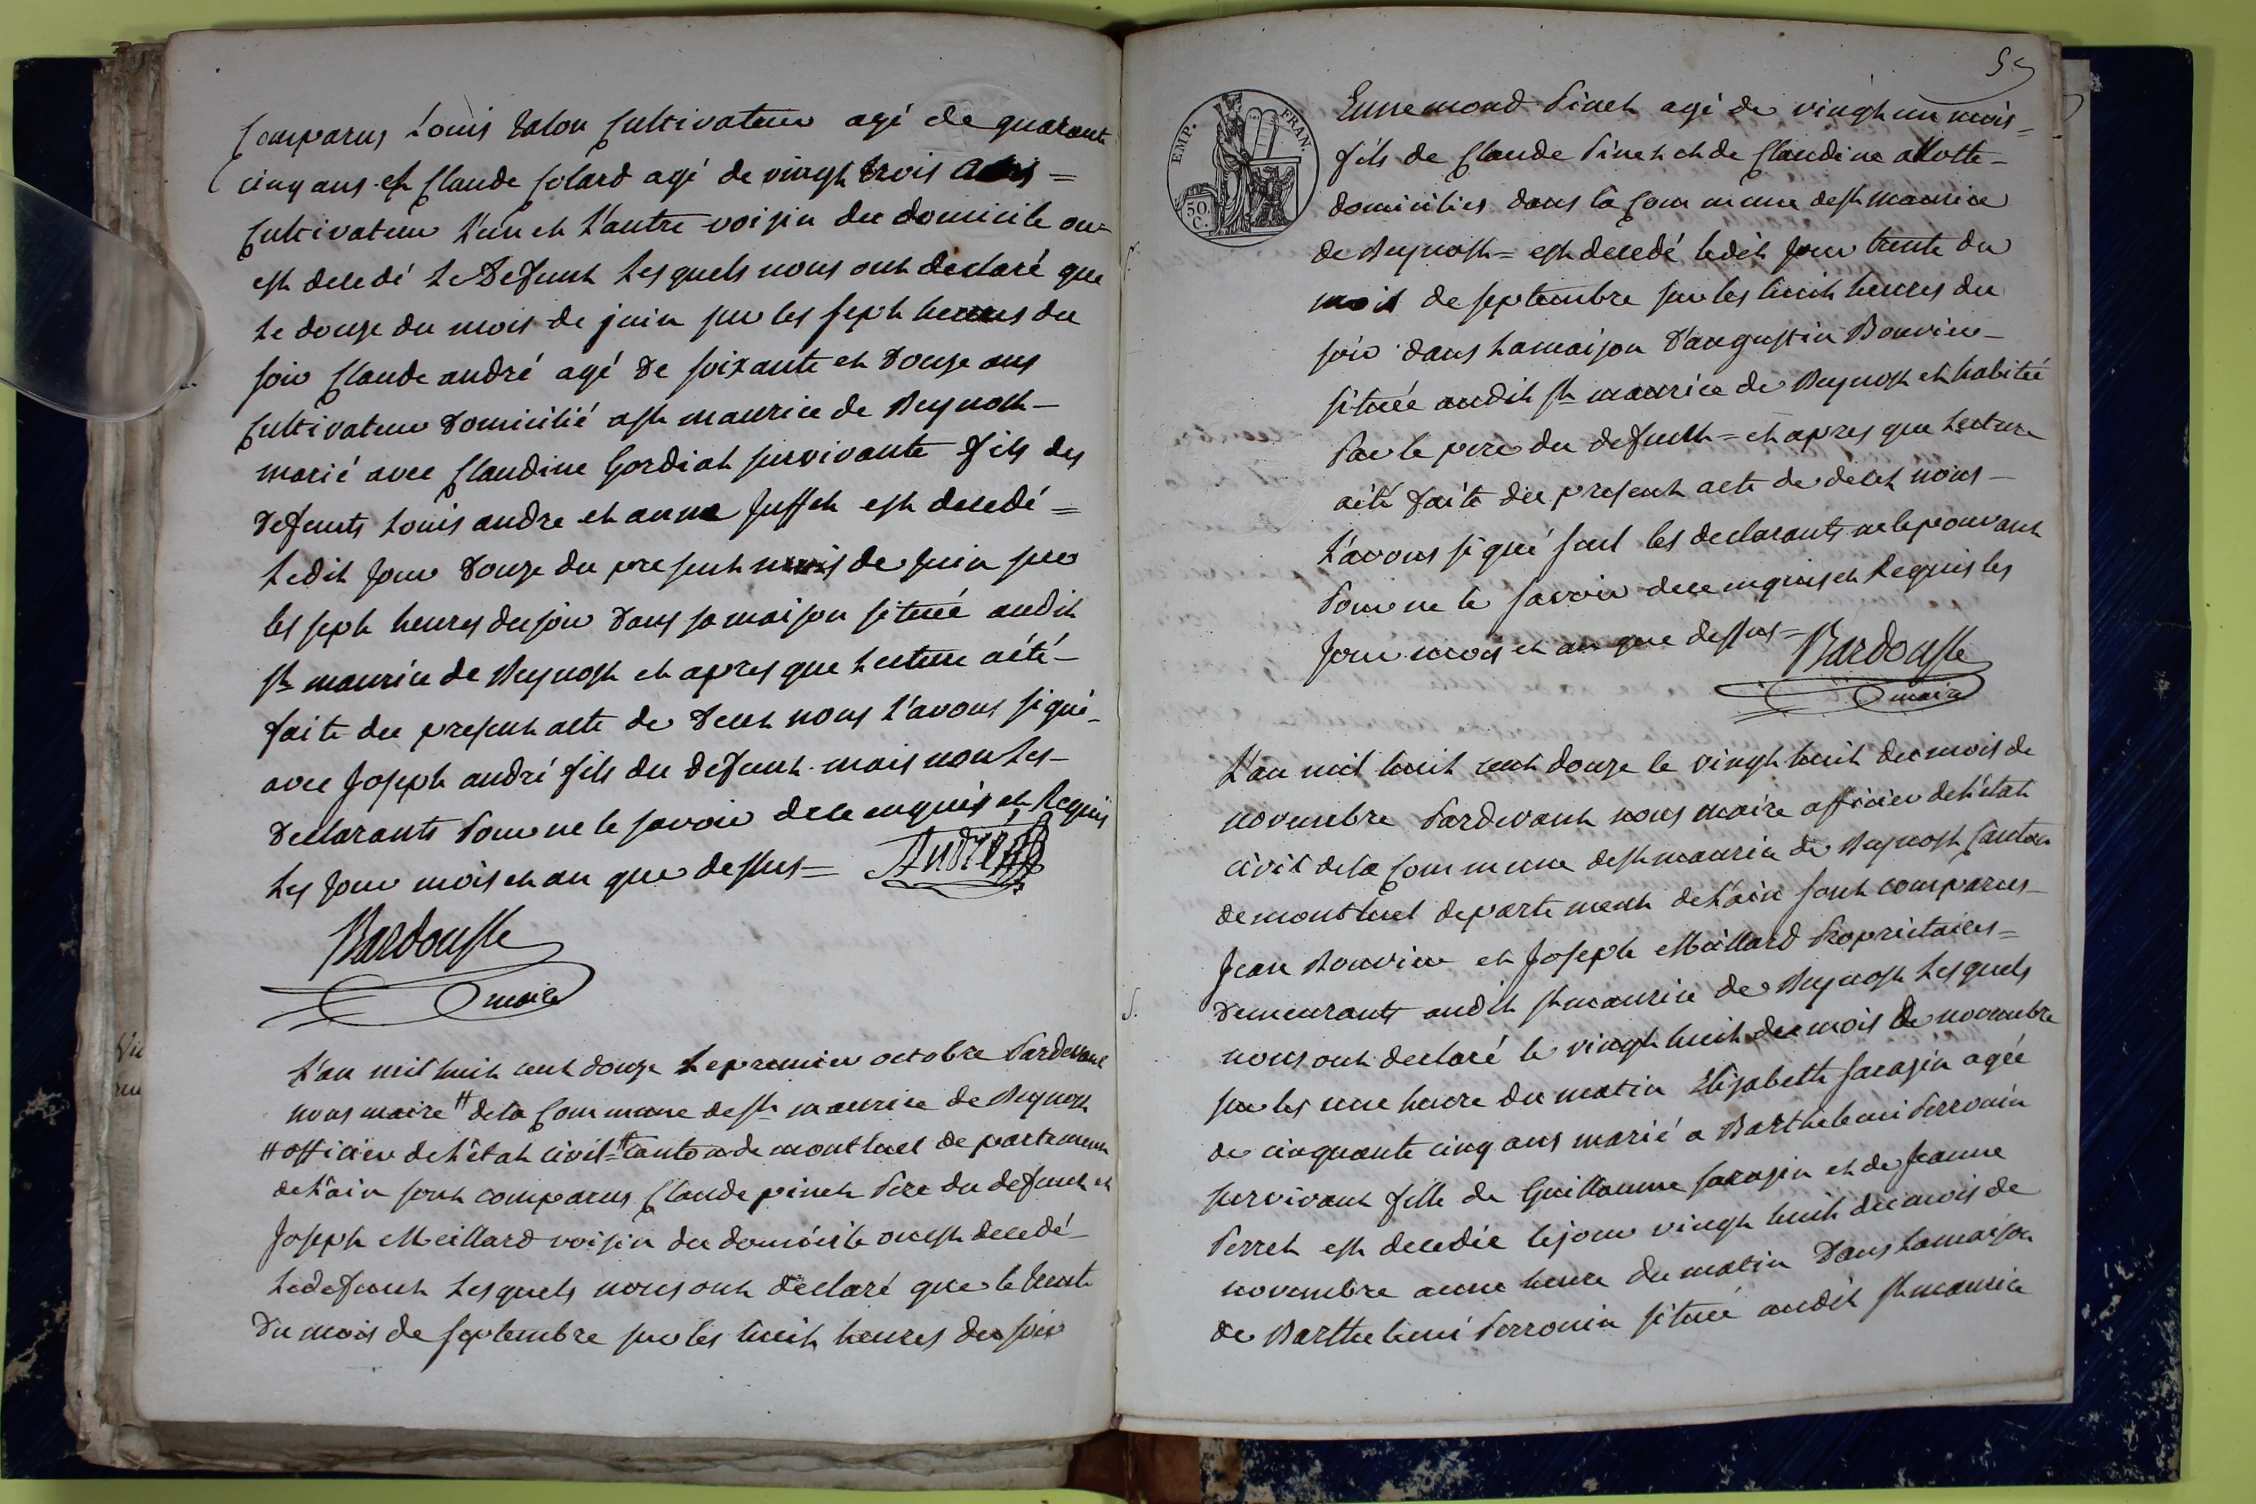 Comparus Louis Talon Cultivateur agé de quarante
cinq ans et Claude Colard agé de vingt trois ans =
Cultivateur L'un et L'autre voisin du domicile ou
est decedé Le Defunt Lesquels nous ont declaré que
Le douze du mois de juin sur les sept heures du
soir Claude andré agé de soixante et Douze ans
Cultivateur Domicilié a st maurice de Beynost -
marié avec Claudine Gordiat survivante fils des
Defunts Louis andre et anne Juffet est decedé =
Ledit Jour Douze du present mois de juin sur
les sept heures du soir Dans sa maison située audit
st maurice de Beynost et apres que Lecture a été -
faite du present acte de Decet nous L'avons signé -
avec Joseph andré fils du Defunt mais non Les -
Declarants Pour ne le savoir de ce enquis et Requis
Les Jour mois et an que dessus = André
Bardousse
maire
L'an mil huit cent douze Le premier octobre Pardevant
nous maire # de la Commune de st maurice de Beynost
# officier de L'état Civil = # canton de montluel departement
de L'ain sont comparus Claude pinet Pere du defunt et
Joseph Meillard voisin du domicile ou est decedé -
Le defunt Lesquels nous ont declaré que le trente
Du mois de septembre sur les huit heures du soir
55
EMP. FRAN.
50.
C.
Ennemond Pinet agé de vingt un mois =
fils de Claude Pinet et de Claudine Mollte -
domiciliés dans la Commune de st maurice
de Beynost = est decedé ledit Jour trente du
mois de septembre sur les huit heures du
soir dans La maison D'augustin Bouvier -
située audit st maurice de Beynost et habitée
Par le pere du defunt = et apres que Lecture
a été faite du present acte de decet nous -
L'avons signé seul les declarants ne le pouvant
Pour ne le savoir de ce enquis et Requis les
Jour mois et an que dessus = Bardousse
maire
L'an mil huit cent douze le vingt huit du mois de
novembre Pardevant nous maire officier de L'état
civil de la Commune de st maurice de Beynost Canton
de montluel departement de L'ain sont comparus -
Jean Bouvier et Joseph Meillard Proprietaires =
Demeurants audit st maurice de Beynost Lesquels
nous ont declaré le vingt huit du mois De novembre
sur les une heure du matin Elizabeth sarazin agée
de cinquante cinq ans marié a Barthelemi Perronin
survivant fille de Guillaume sarazin et de Jeanne
Perret est decedée le jour vingt huit du mois de
novembre a une heure du matin Dans La maison
de Barthelemi Perronin située audit st maurice